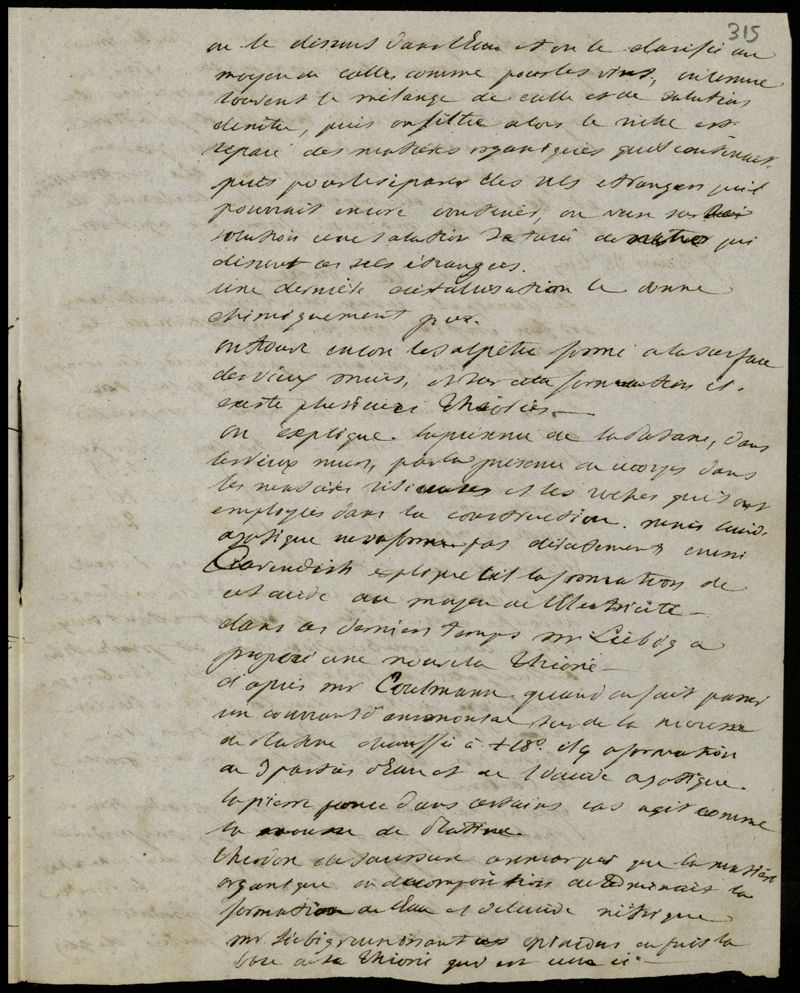 315
on le dissout dans l'Eau et on le clarifie au
moyen de colle comme pour les vins, on
souvent le mélange de colle et de solution
de nitre, puis on filtre alors le nitre est
séparé des matières organiques qu'il contenait.
puis pour le séparer des sels etrangers qu'il
pourrait encore contenir, on verse sur
solution une solution saturé de nitre qui
dissout ces sels étrangers.
une dernière cristalisation le donne
chimiquement pur.
on trouve encore le salpetre formé a la surface
des vieux murs, et sur cette formation il
existe plusieurs Théories —
on explique la présence de la Potasse, dans
les vieux murs, par la présence de ce corps dans
les matières et les roches qui sont
employées dans la construction. mais l'acide
azotique ne se forme pas directement aussi
Cavendish explique t'il la formation de
cet acide au moyen de l'Electricité —
dans ces derniers temps mr Liebig a
proposé une nouvelle Théorie —
d'après mr quand on fait passer
un courant d'ammoniac sur de la mousse
de Platine chauffée à + 18°. il y a formation
de 3 parties d'Eau et de 1 d'acide azotique.
la pierre ponce dans certains cas agit comme
la mousse de Platine.
Théodore de Saussure a remarqué que la matière
organique en décomposition déterminait la
formation de l'Eau et de l'acide nitrique
mr Liebig réunissant ces opinions en fait la
base de sa Théorie qui est celle ci —